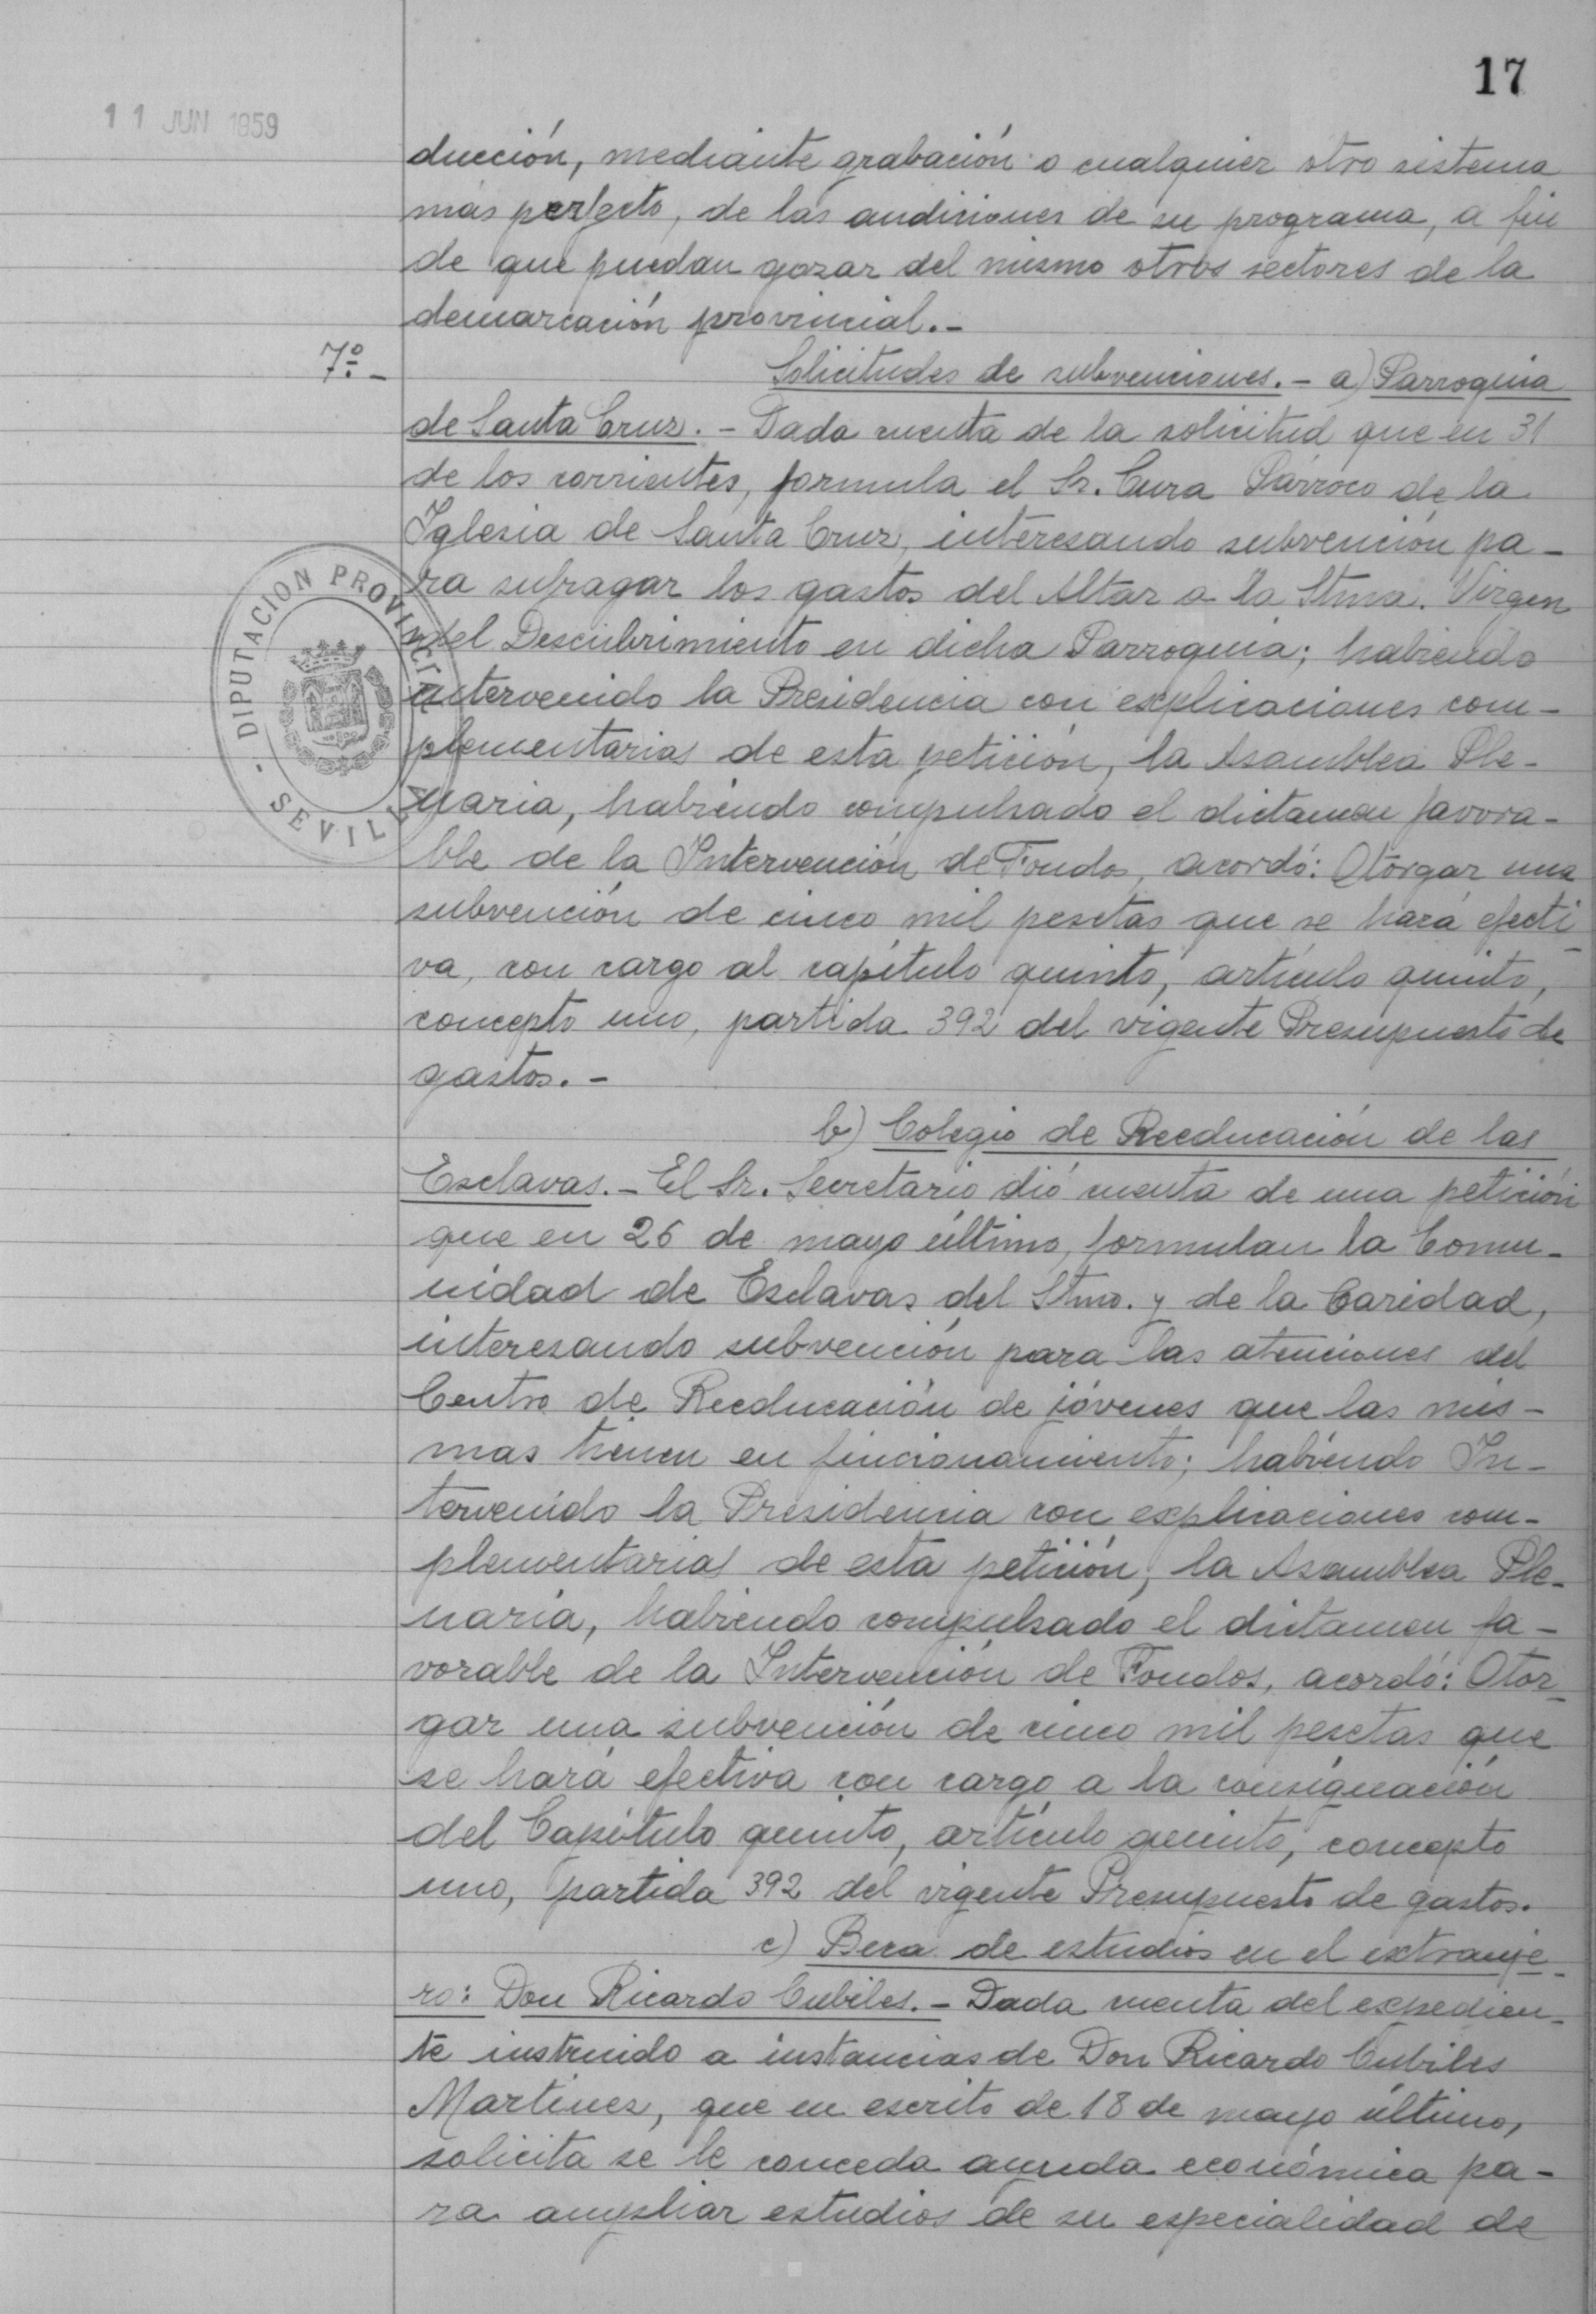 17
11 JUN 1959
ducción, mediante grabación o cualquier otro sistema
más perfecto, de las audiciones de su programa, a fin
de que puedan gozar del mismo otros sectores de la
demarcación provincial.-
7º.-
Solicitudes de subvenciones.- a) Parroquia
de Santa Cruz.- Dada cuenta de la solicitud que en 31
de los corrientes, formula el Sr. Cura Párroco de la
Iglesia de Santa Cruz, interesando subvención pa-
ra sufragar los gastos del Altar a la Stma. Virgen
del Descubrimiento en dicha Parroquia; habiendo
intervenido la Presidencia con explicaciones com-
plementarias de esta petición, la Asamblea Ple-
naria, habiendo compulsado el dictamen favora-
ble de la Intervención de Fondos, acordó: Otorgar una
subvención de cinco mil pesetas que se hará efecti-
va, con cargo al capítulo quinto, artículo quinto,
concepto uno, partida 392 del vigente Presupuesto de
gastos.-
DIPUTACION PROVINCIAL
SEVILLA
b) Colegio de Reeducación de las
Esclavas.- El Sr. Secretario dió cuenta de una petición
que en 26 de mayo último, formulan la Comu-
nidad de Esclavas del Stmo. y de la Caridad,
interesando subvención para las atenciones del
Centro de Reeducación de jóvenes que las mis-
mas tienen en funcionamiento; habiendo In-
tervenido la Presidencia con explicaciones com-
plementarias de esta petición, la Asamblea Ple-
naria, habiendo compulsado el dictamen fa-
vorable de la Intervención de Fondos, acordó: Otor-
gar una subvención de cinco mil pesetas que
se hará efectiva con cargo a la consignación
del Capítulo quinto, artículo quinto, concepto
uno, partida 392 del vigente Presupuesto de gastos.
c) Beca de estudios en el extranje-
ro: Don Ricardo Cubiles.- Dada cuenta del expedien-
te instruido a instancias de Don Ricardo Cubiles
Martinez, que en escrito de 18 de mayo último,
solicita se le conceda ayuda económica pa-
ra ampliar estudios de su especialidad de